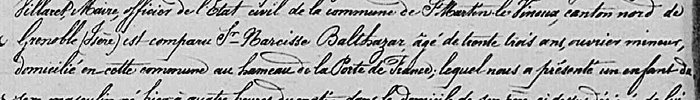 Villaret, Maire officier de l'Etat civil de la commune de St Martin-le-Vinoux, canton nord de
Grenoble (Isère) est comparu Sr Narcisse Balthazar âgé de trente trois ans, ouvrier mineur,
domicilié en cette commune au hameau de la Porte de France; lequel nous a présenté un enfant de
sexe masculin né hier à quatre heures du matin dans le domicile de